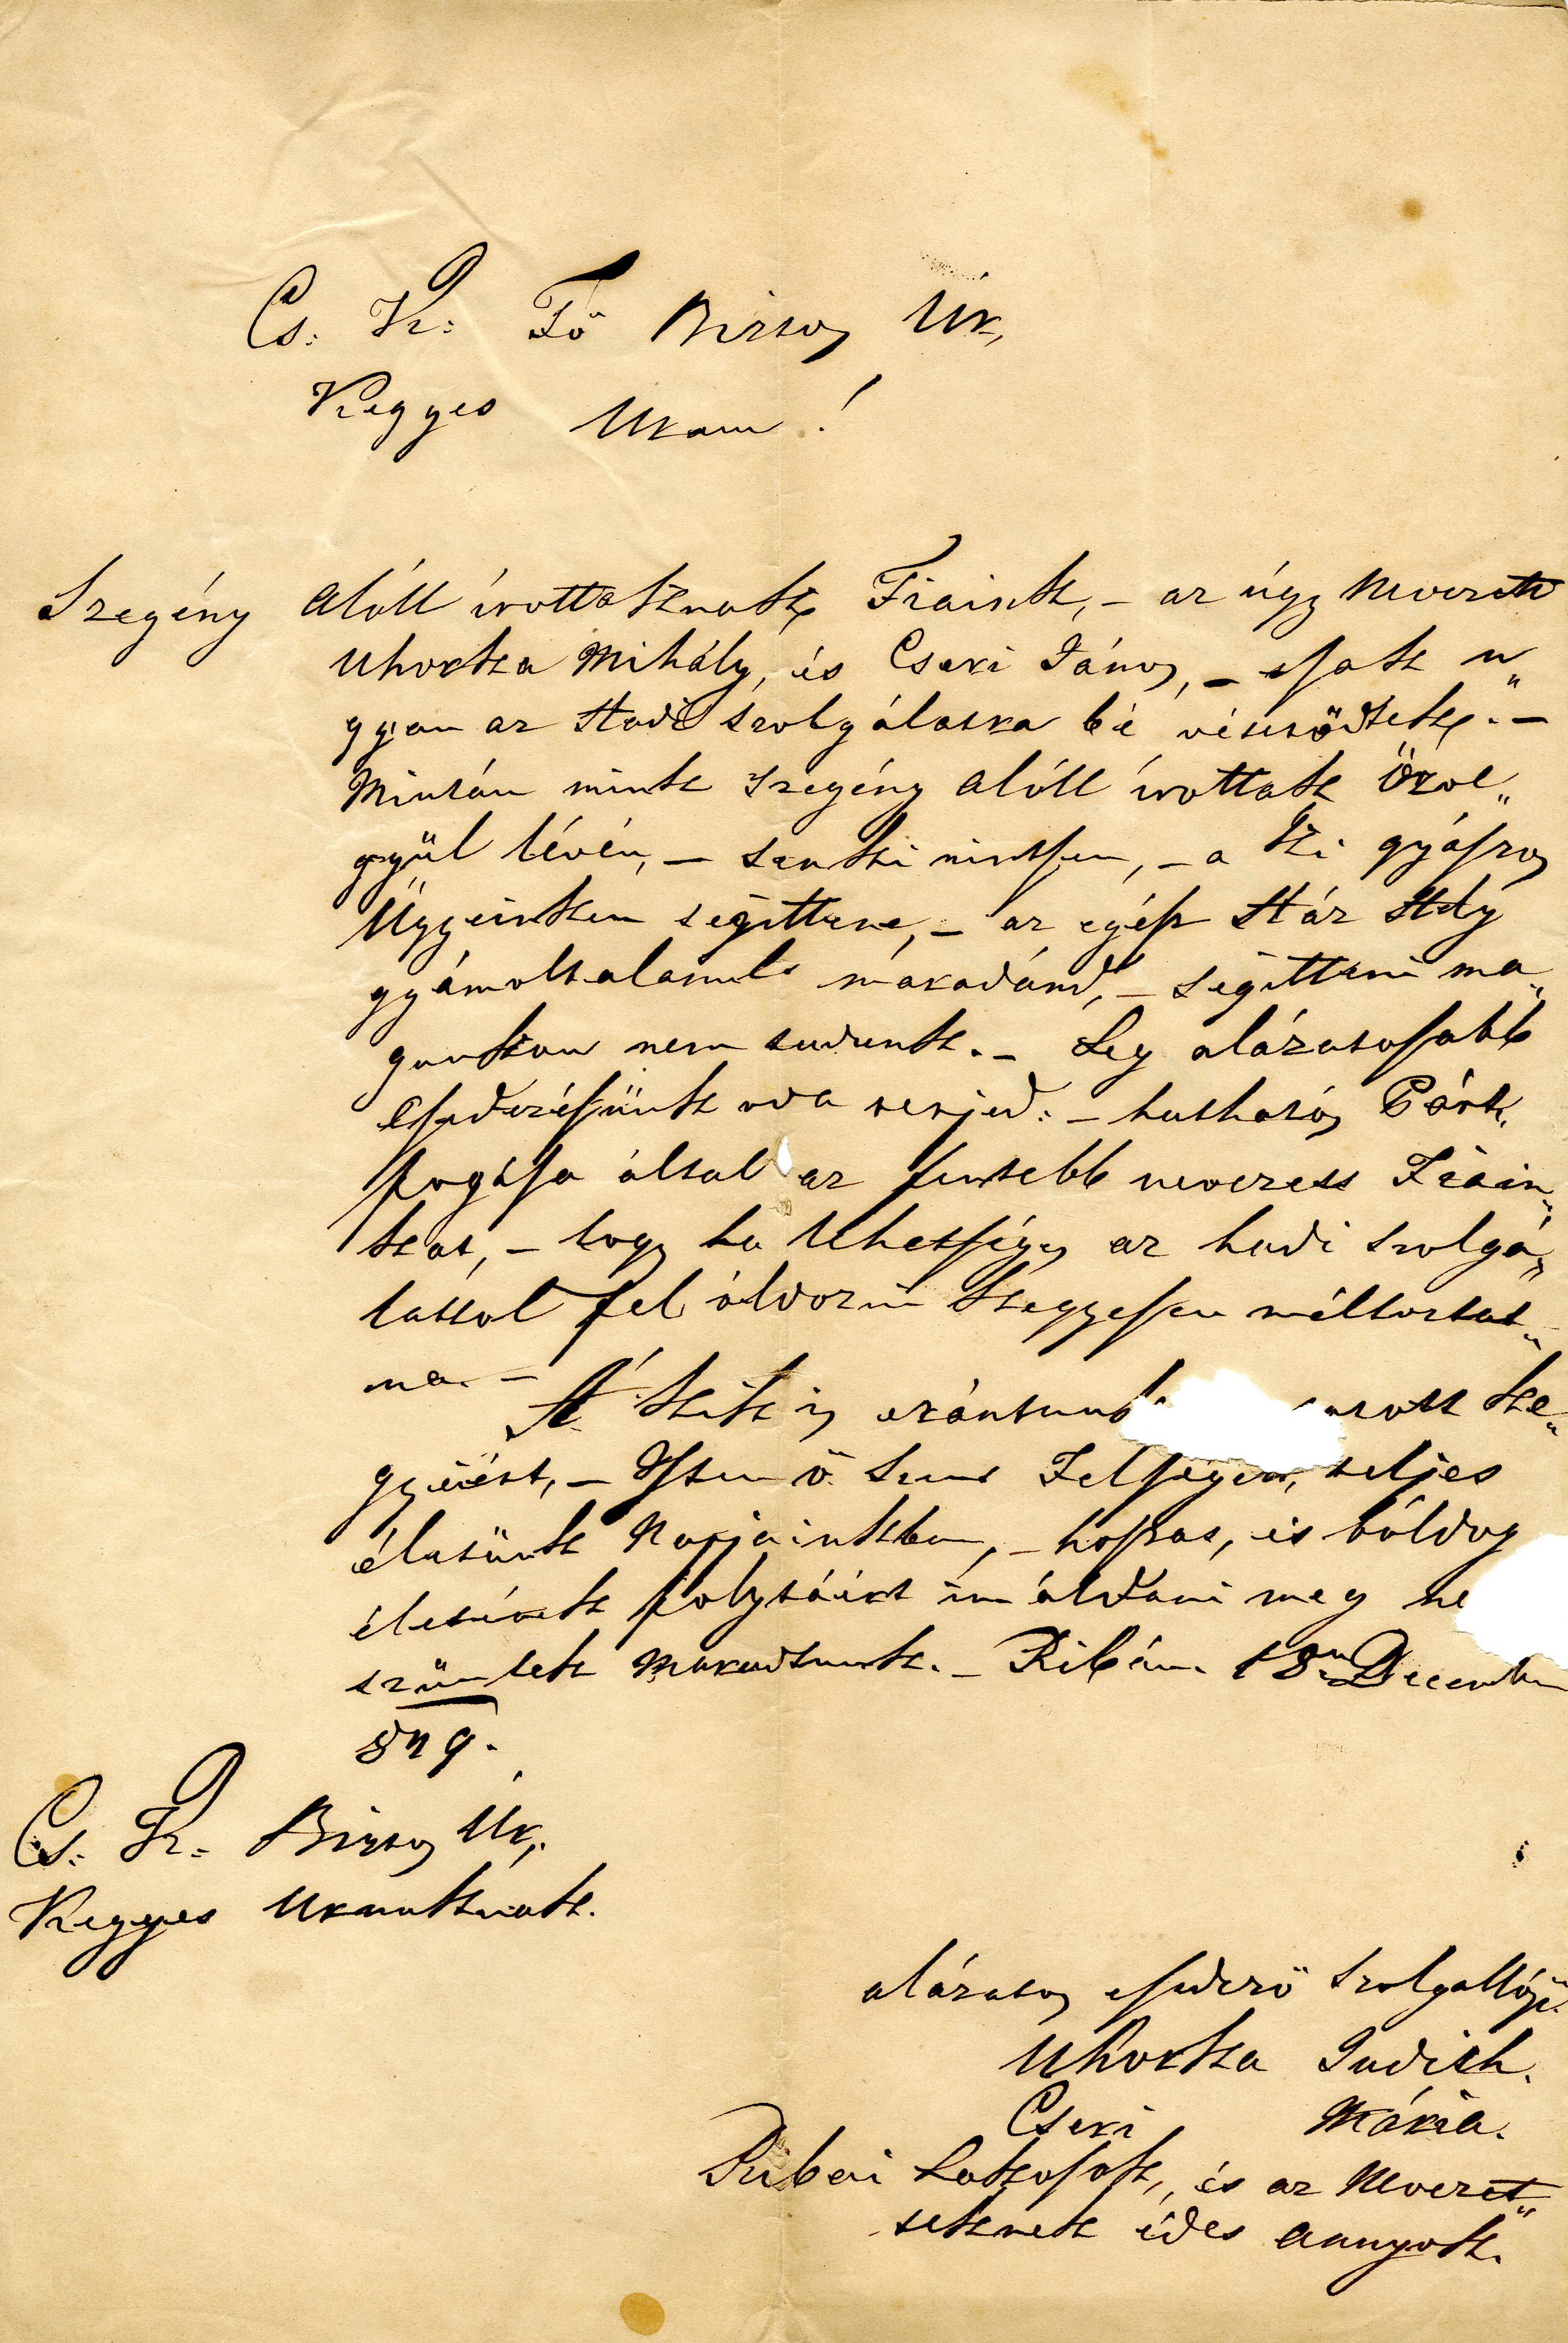 Cs: K: Fő Biztos Úr,
Kegyes Uram!
Szegény alóll írottaknak, Fiaink, – az úgy Nevezett
Uhorka Mihály, és Cseri János, – csak u„
gyan az Hadi szolgálatra bé vétetődtek. –
Mintán mink szegény alóll írottak Özve„
gyül lévén, – senki nintsen, – a ki gyászos
Ügyeinken segittene, – az egész Ház Hely
gyámoltalanul maradánd, – segitteni ma„
gunkon nem tudunk. – Leg alázatosabb
esedezésünk oda terjed: – hathatós Párt„
fogása által az fentebb nevezett Fiain„
kat, – hogy ha lehetséges az hadi szolgá„
lattol fel óldozni kegyessen méltoztat„
na. –
A kik is eránturk ke„
gyéért, – Isten ő Szent Felségét, teljes
életünk Napjainkban, – hoszas, és bóldog
életének folytáért imáldani meg ne
szünlek Maradtunk. – Ribán 18n December
849.
Cs: K: Biztos Úr,
Kegyes Urunknak.
alázatos esedező Szolgallóji
Uhorka Judith.
Cseri Mária.
Ribai Lakosok, és az Nevezet„
teknek édes Annyok.